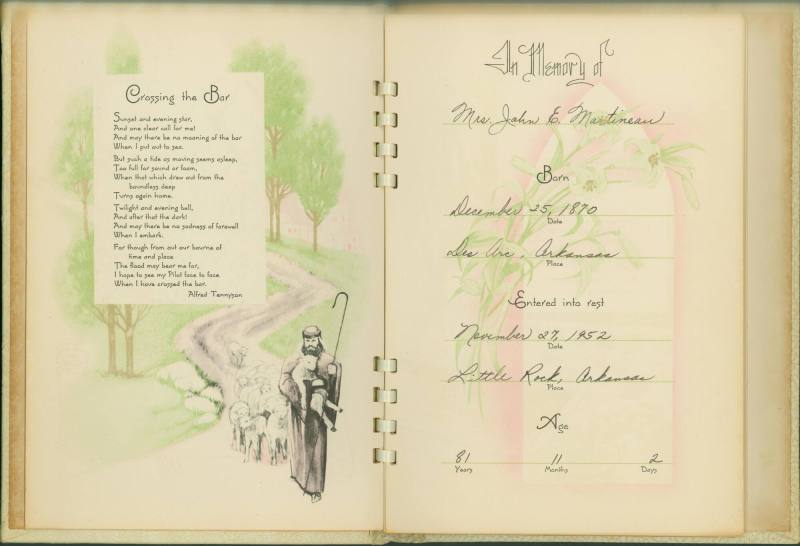 Crossing the Bar
Sunset and evening star,
And one clear call for me!
And may there be no moaning of the bar
When I put out to sea.
But such a tide as moving seems asleep,
Too full for sound or foam,
When that which drew out from the
boundless deep
Turns again home.
Twilight and evening bell,
And after that the dark!
And may there be no sadness of farewell
When I embark.
For though from out our bourne of
time and place
The flood may bear me far,
I hope to see my Pilot face to face
When I have crossed the bar.
Alfred Tennyson
In Memory of
Mrs. John E. Martineau
Born
December 25, 1870
Date
Des Arc, Arkansas
Place
Entered into rest
November 27, 1952
Date
Little Rock, Arkansas
Place
Age
81 11 2
Years Months Days